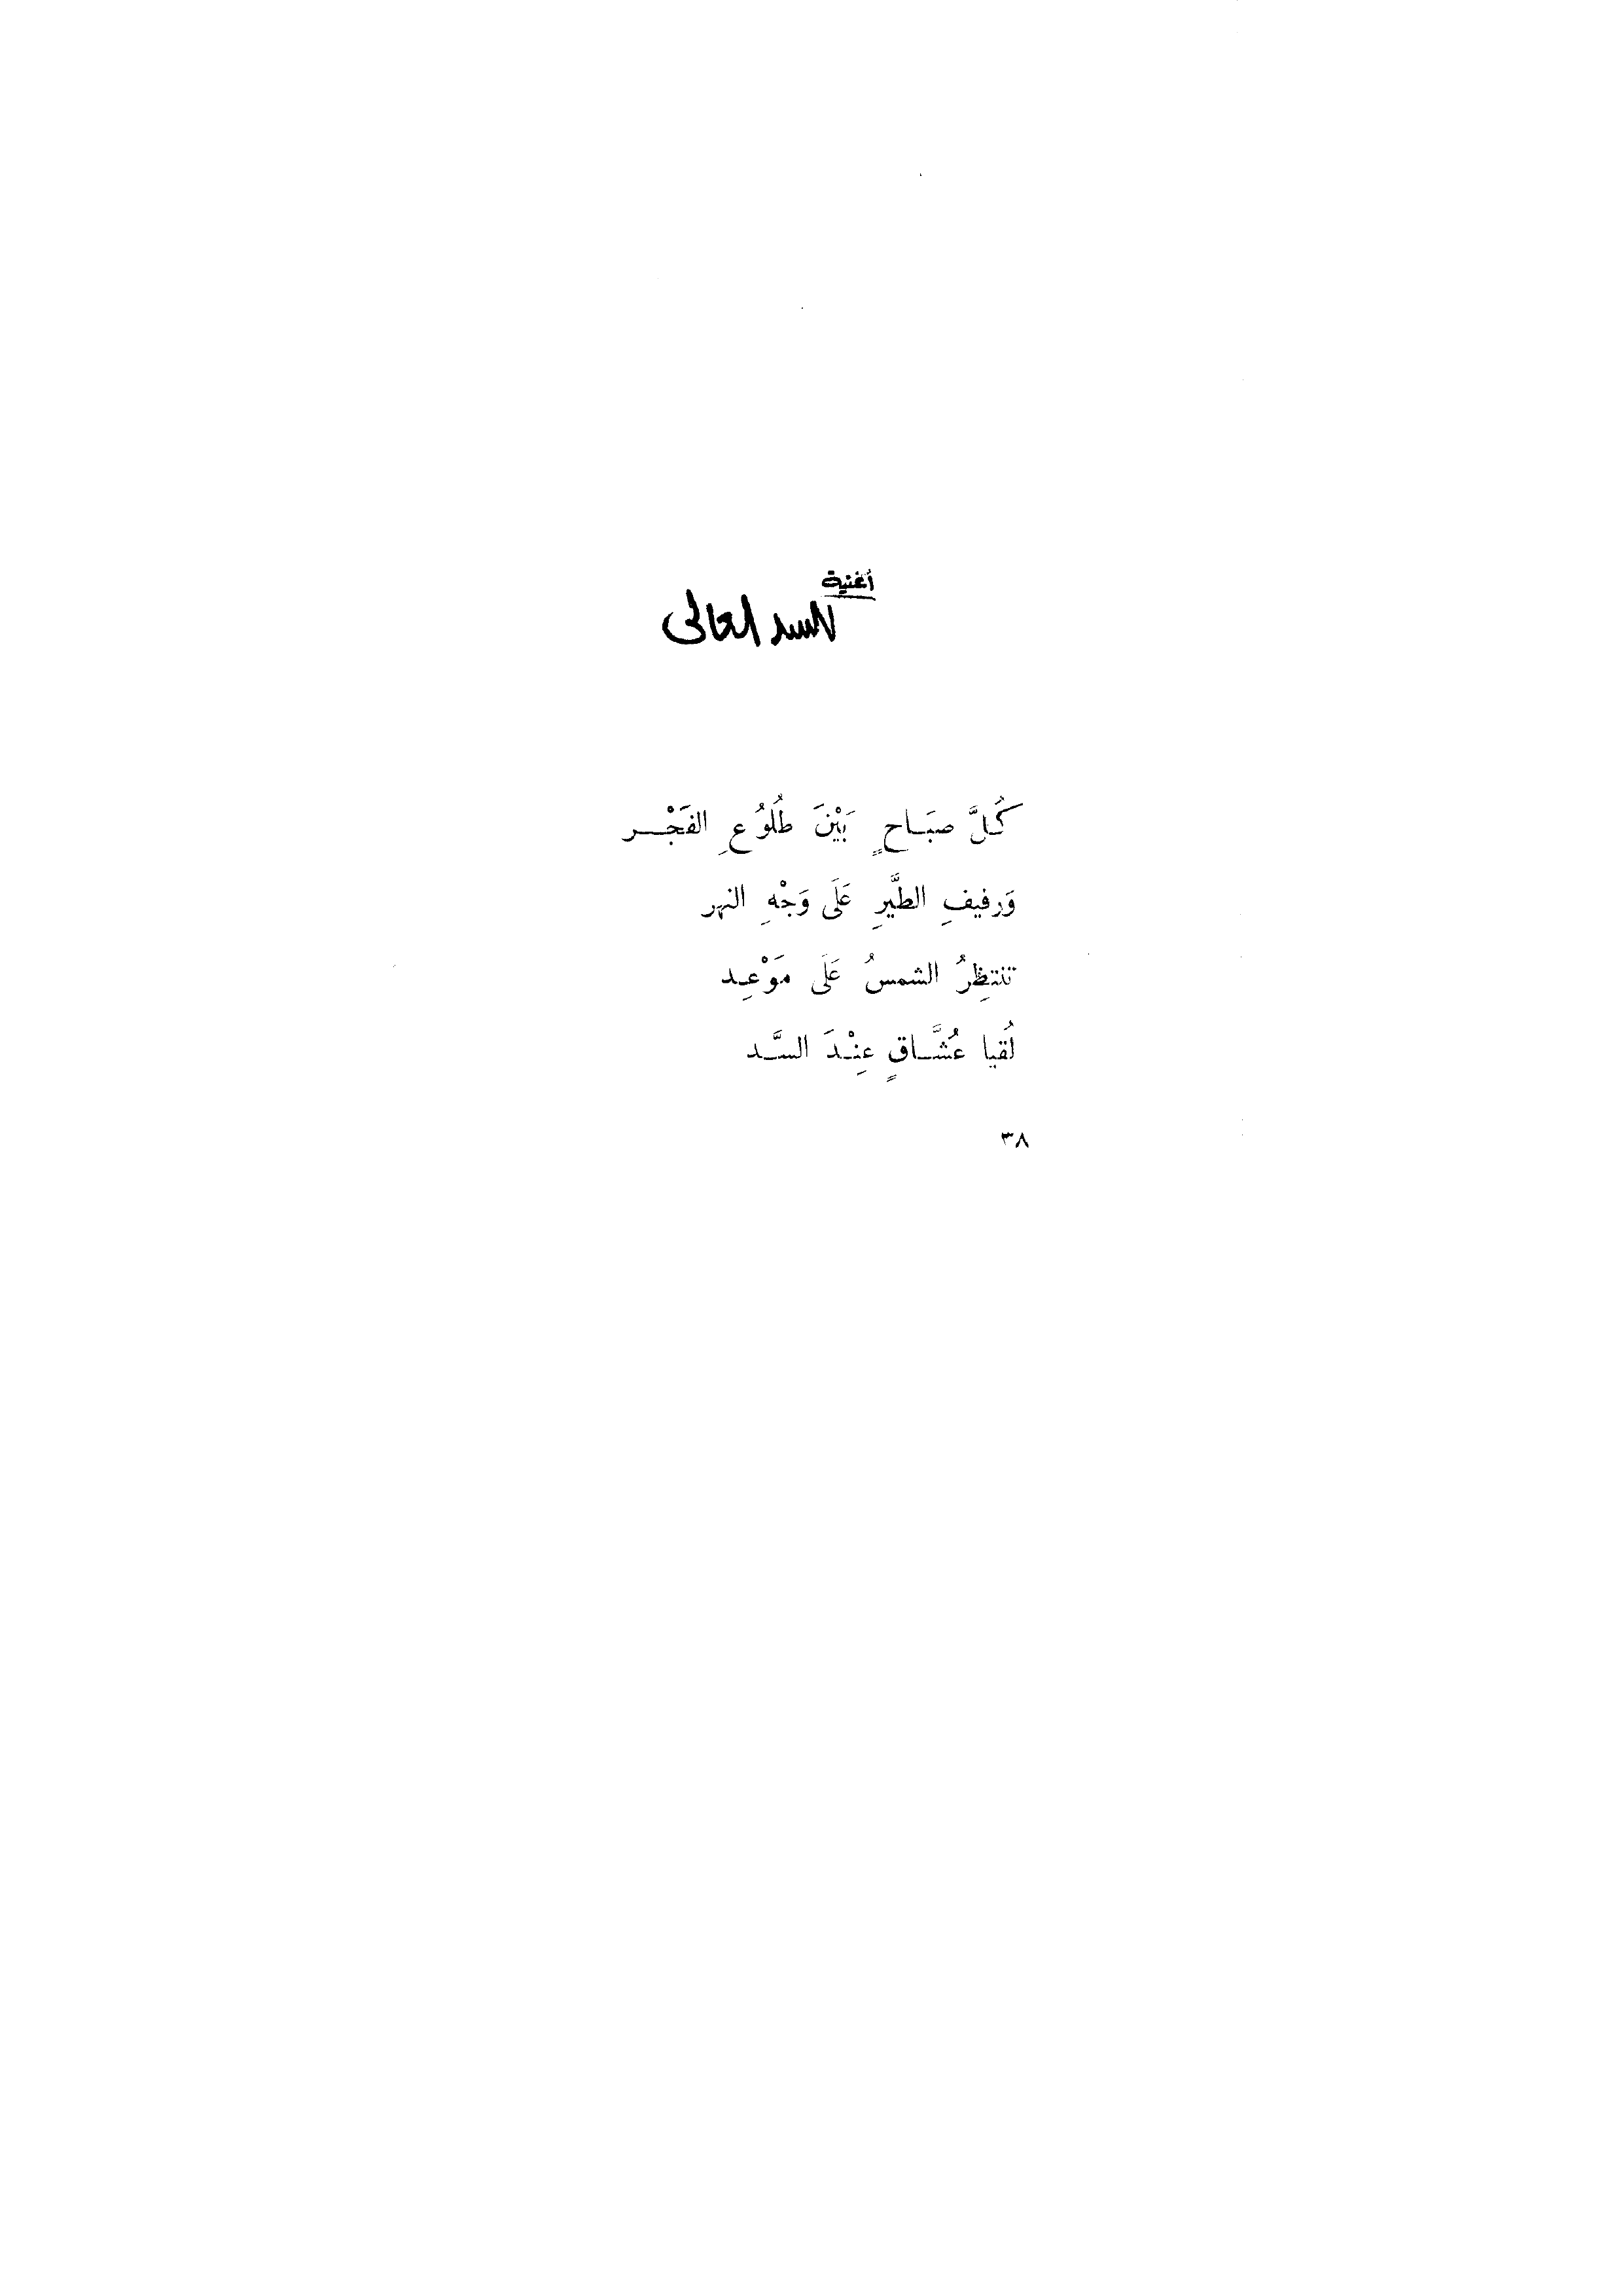 أغنية
للسد العالى
كُلَّ صبَاحٍ بَيْنَ طُلُوُعِ الفَجْر
وَرفيفِ الطَّيرِ عَلَى وَجْهِ النهر
تنتظِرُ الشمسُ عَلَى مَوْعِد
لُقيا عُشَّاقٍ عِنْدَ السَّد
٣٨